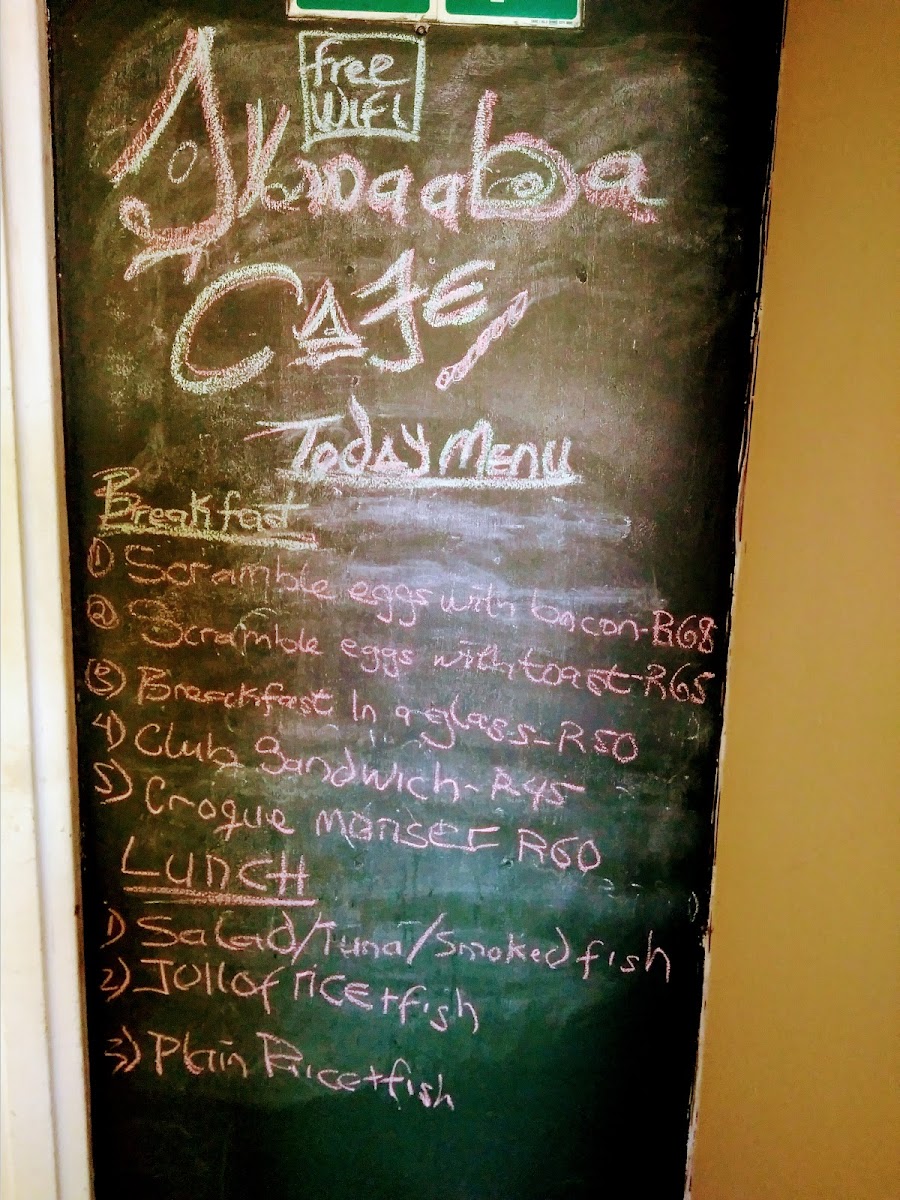 free
WiFi
Akwaaba
CAfE
Today Menu
Breakfast
1) Scramble eggs with bacon-R68
2) Scramble eggs with toast-R65
3) Breakfast In a glass-R50
4) Club Sandwich-R45
5) Croque monsec R60
LUNCH
1) Salad/Tuna/Smoked fish
2) Jollof rice+fish
3) Plain Rice+fish